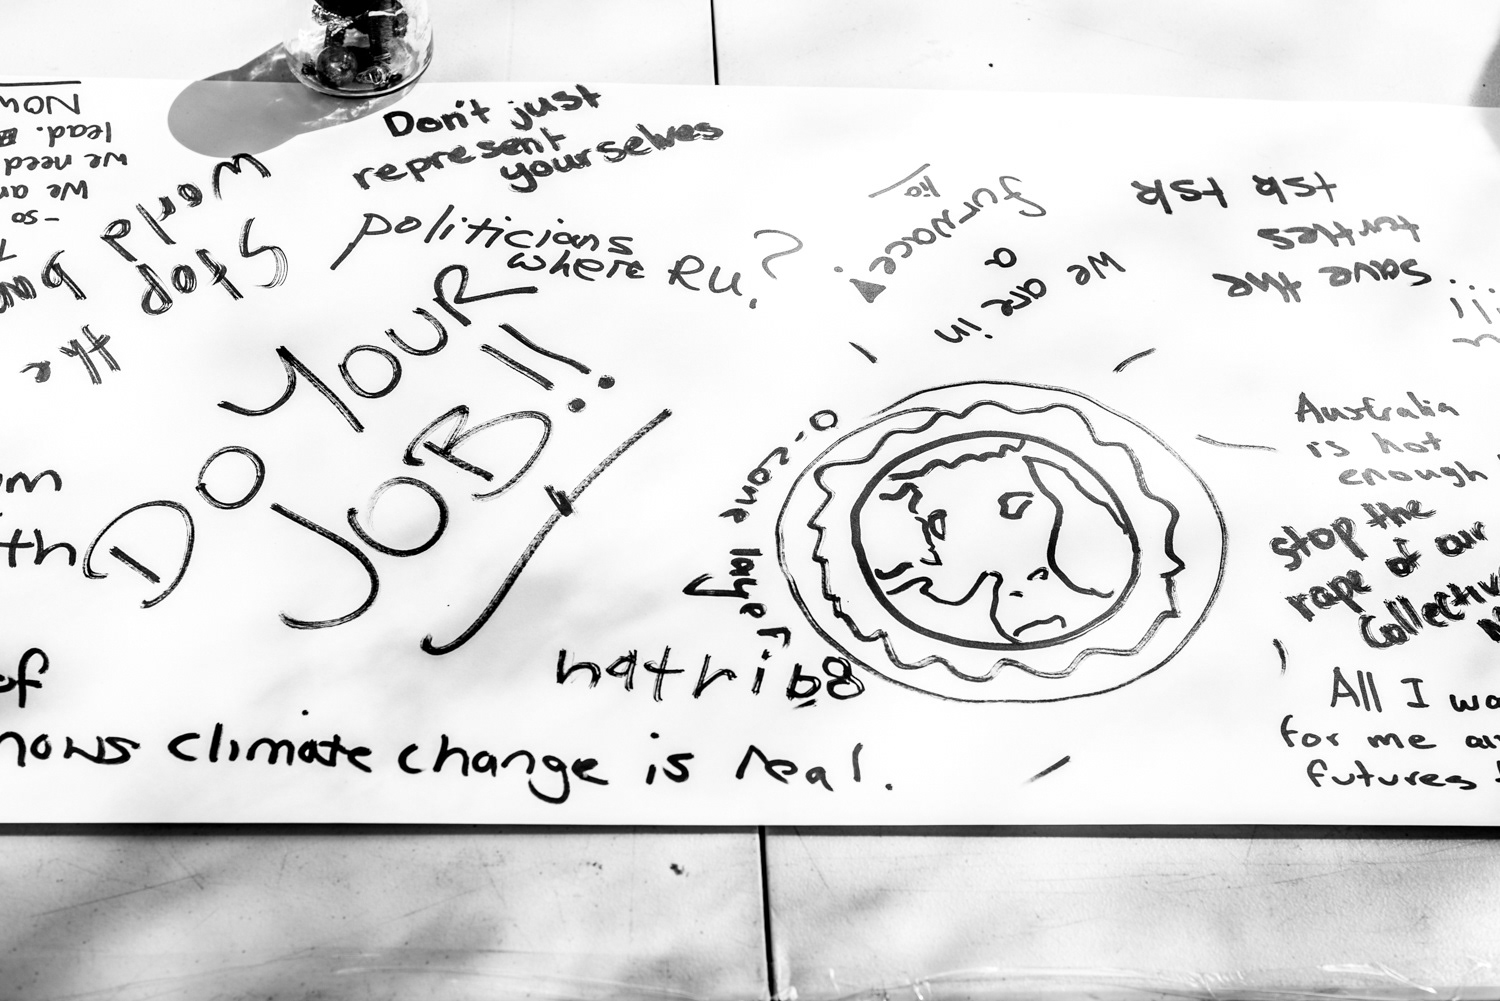 Don't just
represent
yourselves
politicians
where RU?
DO YOUR
JOB!!
NOW
lead.
we need
We
-so
Stop
world
the
We are in
a
furnace!
save the
turtles
tsk tsk
o-zone layer
Australia
is hot
enough
stop the
rape of our
Collective
All I
for me
futures
th
of
climate change is real.